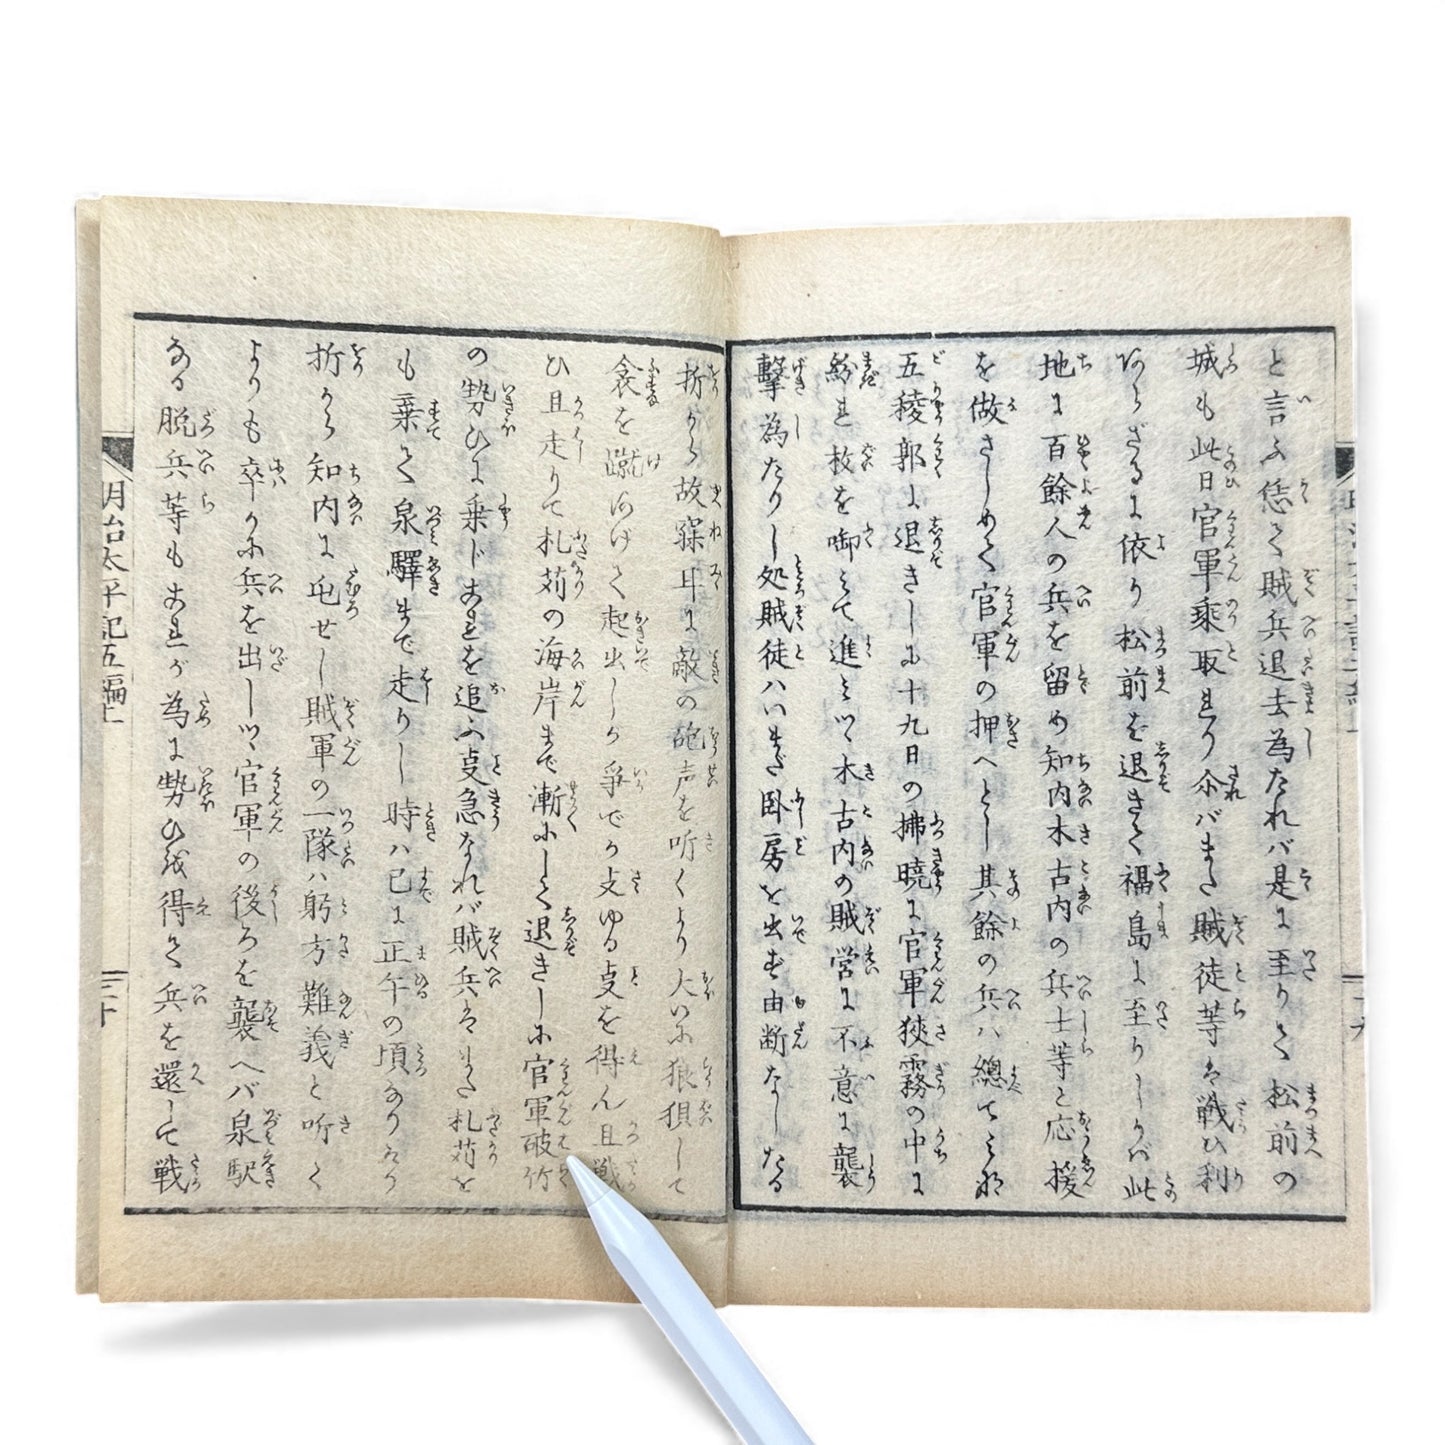 と言ふ恁て賊兵退去為たれバ是に至りて松前の
城も此日官軍乗取れり尒バまた賊徒等ハ戦ひ利
あらざるに依り松前を退きて福島に至りしが此
地に百餘人の兵を留め知内木古内の兵士等と応援
を做さしめて官軍の押へとし其餘の兵ハ總てみな
五稜郭に退きしに十九日の拂暁に官軍狭霧の中に
紛れ枚を啣みて進みツヽ木古内の賊営に不意に襲
撃為たりし処賊徒ハいまだ臥房を出ず由断なしたる
折から故寐耳に敵の砲声を听くより大いに狼狽して
衾を蹴あげて起出しが爭でか支ゆる支を得ん且戦
ひ且走りて札苅の海岸まで漸にして退きしに官軍破竹
の勢ひに乗じあれを追ふ支急なれバ賊兵ハまた札苅を
も棄て泉驛まで走りし時ハ已に正午の頃なりける
折から知内に屯せし賊軍の一隊ハ躬方難義と听く
よりも卒かに兵を出しツヽ官軍の後ろを襲へバ泉駅
なる脱兵等もあれが為に勢ひを得て兵を還して戦
明治太平記五編上
二十